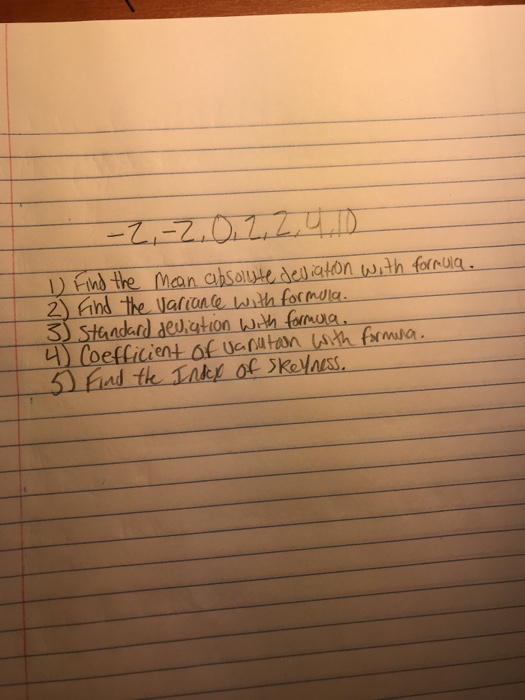 -2, -2, 0, 2, 2, 4, 10
1) Find the Mean absolute deviation with formula.
2) Find the Variance with formula.
3) Standard deviation with formula.
4) Coefficient of variation with formula.
5) Find the Index of skeyness.